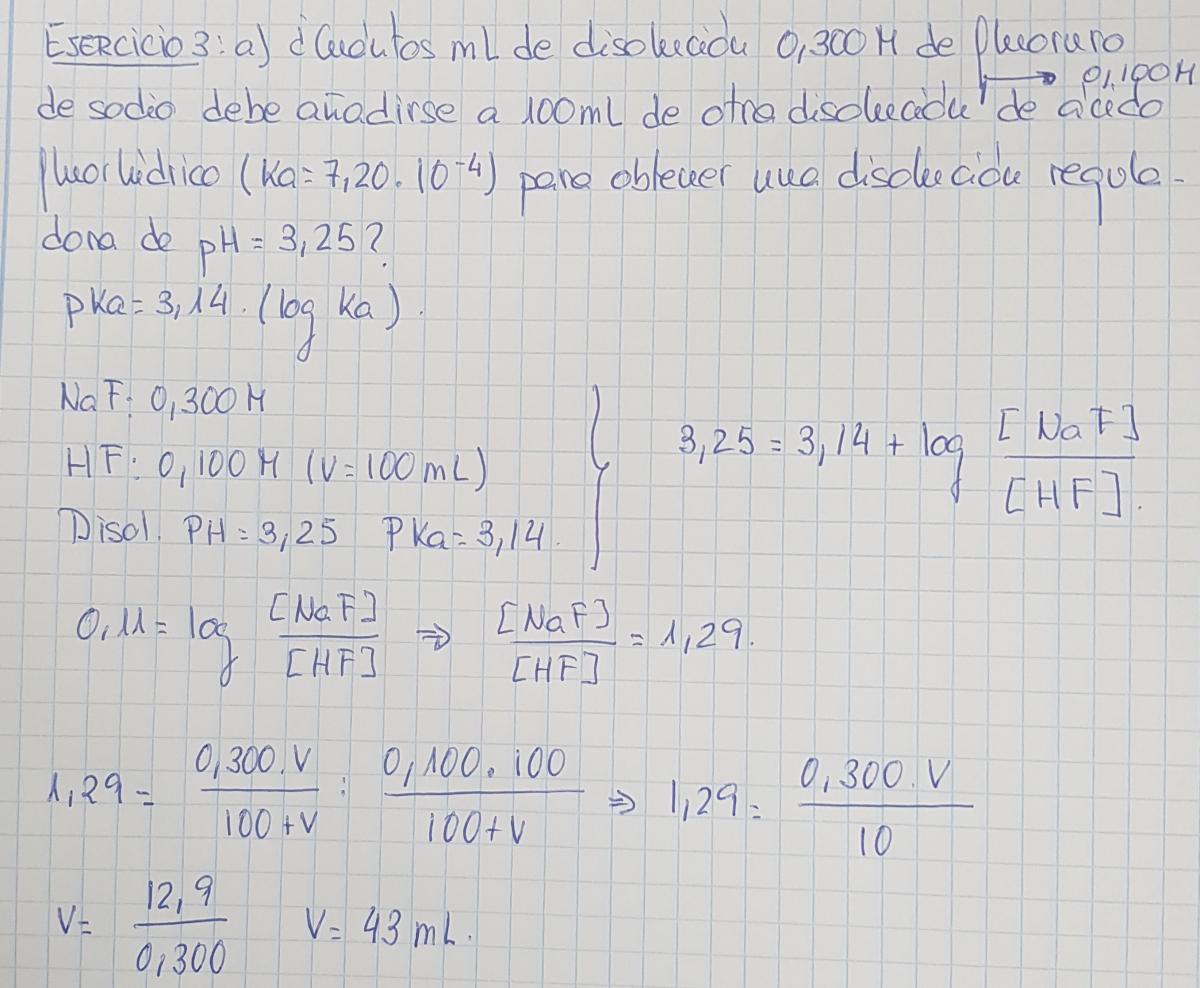 Ejercicio 3: a) ¿Cuántos mL de disolución 0,300 M de fluoruro
→ 0,100 M
de sodio debe añadirse a 100 mL de otra disolución de ácido
fluorhídrico (Ka = 7,20 . 10⁻⁴) para obtener una disolución regula-
dora de pH = 3,25?
pKa = 3,14. (log Ka).
NaF: 0,300 M
HF: 0,100 M (V = 100 mL)
Disol. PH = 3,25 PKa = 3,14.
3,25 = 3,14 + log [NaF] / [HF].
0,11 = log [NaF] / [HF] ⇒ [NaF] / [HF] = 1,29.
1,29 = 0,300.V / 100+V : 0,100.100 / 100+V ⇒ 1,29 = 0,300.V / 10
V = 12,9 / 0,300 V = 43 mL.